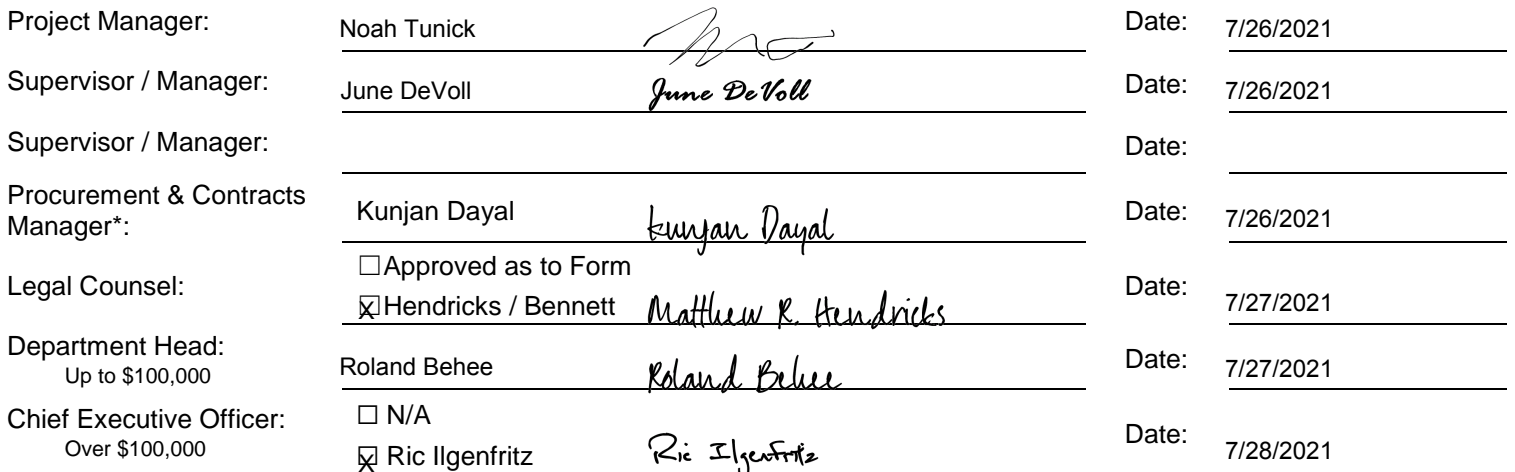 Project Manager: Noah Tunick Date: 7/26/2021
Supervisor / Manager: June DeVoll June DeVoll Date: 7/26/2021
Supervisor / Manager: Date:
Procurement & Contracts
Manager*: Kunjan Dayal Kunjan Dayal Date: 7/26/2021
☐Approved as to Form
Legal Counsel: Date:
☒Hendricks / Bennett Matthew R. Hendricks 7/27/2021
Department Head: Date:
Up to $100,000 Roland Behee Roland Behee 7/27/2021
☐ N/A
Chief Executive Officer: Date:
Over $100,000 ☒ Ric Ilgenfritz Ric Ilgenfritz 7/28/2021